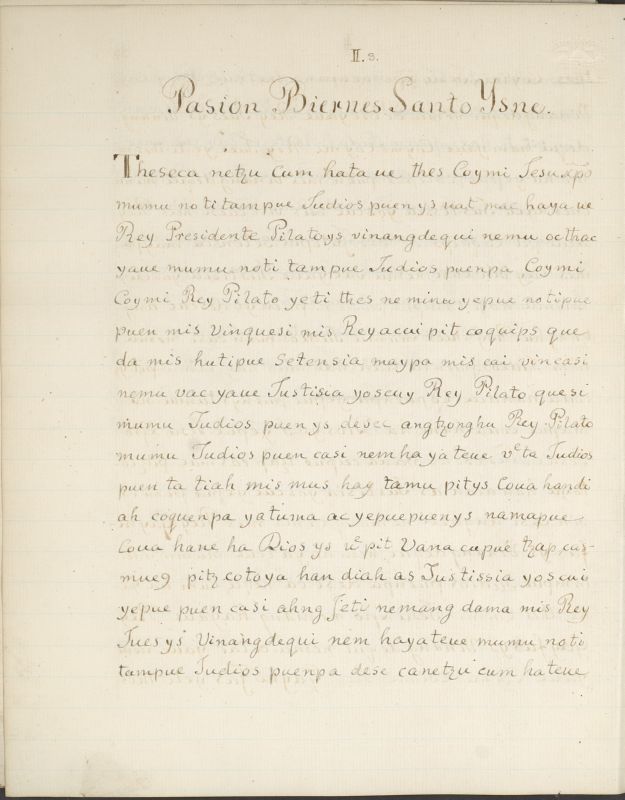 II. 3.
Pasion Biernes Santo Ysne.
Theseca netzu cum hata ue thes Coymi Jesu xpō
mumu noti tampue Judios puenys uat mac haya ue
Rey Presidente Pilatoys vinangdequi nemu octhac
yaue mumu noti tampue Judios puenpa Coymi
Coymi Rey Pilato yeti thes ne minu yepue notipue
puen mis vinquesi mis Reyacui pit coquips que
da mis hutipue Setensia maypa mis cai vincasi
nemu vac yaue Justisia yoscuy Rey Pilato quesi
mumu Judios puenys desec angtzonghu Rey Pilato
mumu Judios puen casi nemhayateue vᵉta Judios
puen ta tiah mis mus hay tamu pitys Coua handi
ah coquenpa yatuma ac yepuepuenys namapue
Coua hane ha Dios ys vᵉ pit Vana cupue tzap cus-
mue9 pitz cotoya han diah as Justissia yoscui
yepue puen casi ahng jeti nemang dama mis Rey
Juesys Vinangdequi nem hayateue mumu noti
tampue Judios puenpa dese canetzu cum hateue